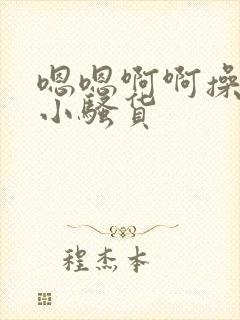 嗯嗯啊啊操
小骚货
程杰本